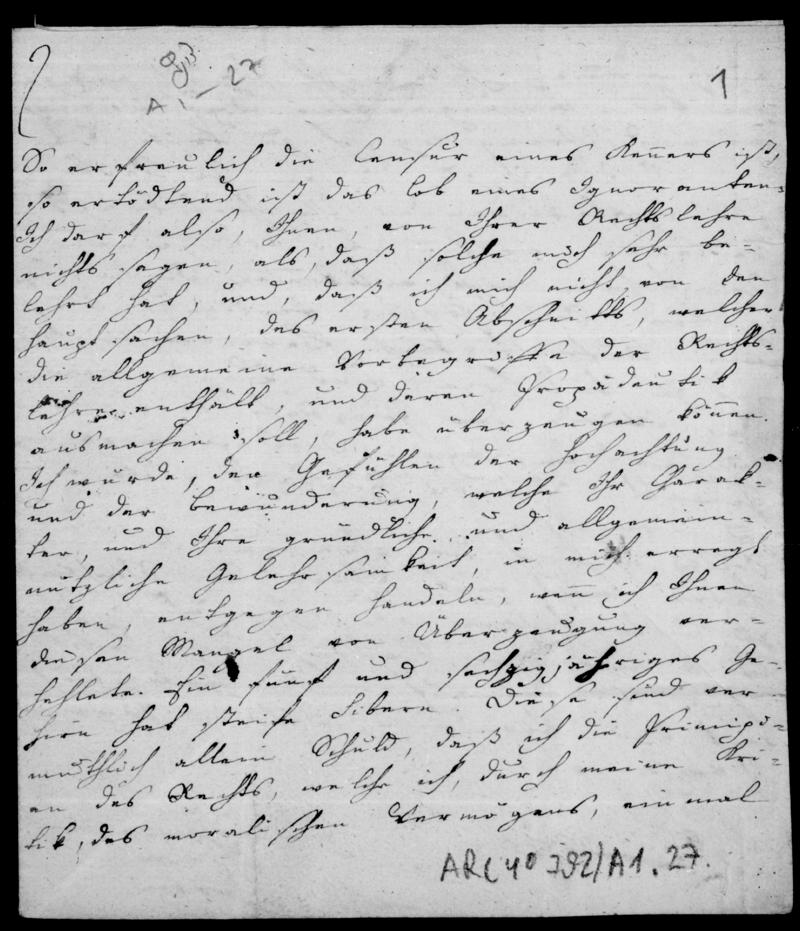 A 1 – 27
1
So erfreulich die Censur eines Kenners ist,
so ertödtend ist das Lob eines Ignoranten.
Ich darf also, Ihnen, von Ihrer Rechtslehre
nichts sagen, als, daß solche mich sehr be-
lehrt hat, und, daß ich mich nicht von den
Hauptsachen, des ersten Abschnitts, welcher
die allgemeine Vorbegriffe der Rechts-
lehre enthält, und deren Propädeutik
ausmachen soll, habe überzeugen können.
Ich würde, den Gefühlen der Hochachtung
und der Bewunderung, welche Ihr Charak-
ter, und Ihre gründliche und allgemein-
nützliche Gelehrsamkeit, in mich erregt
haben, entgegen handeln, wenn ich Ihnen
diesen Mangel von Überzeugung ver-
hehlete. Ein fünf und sechzigjähriges Ge-
hirn hat steife Fibern. Diese sind ver
muthlich allein Schuld, daß ich die Principi-
en des Rechts, welche ich, durch meine Kri-
tik, des moralischen Vermögens, einmal
ARC 4° 792/A1.27.